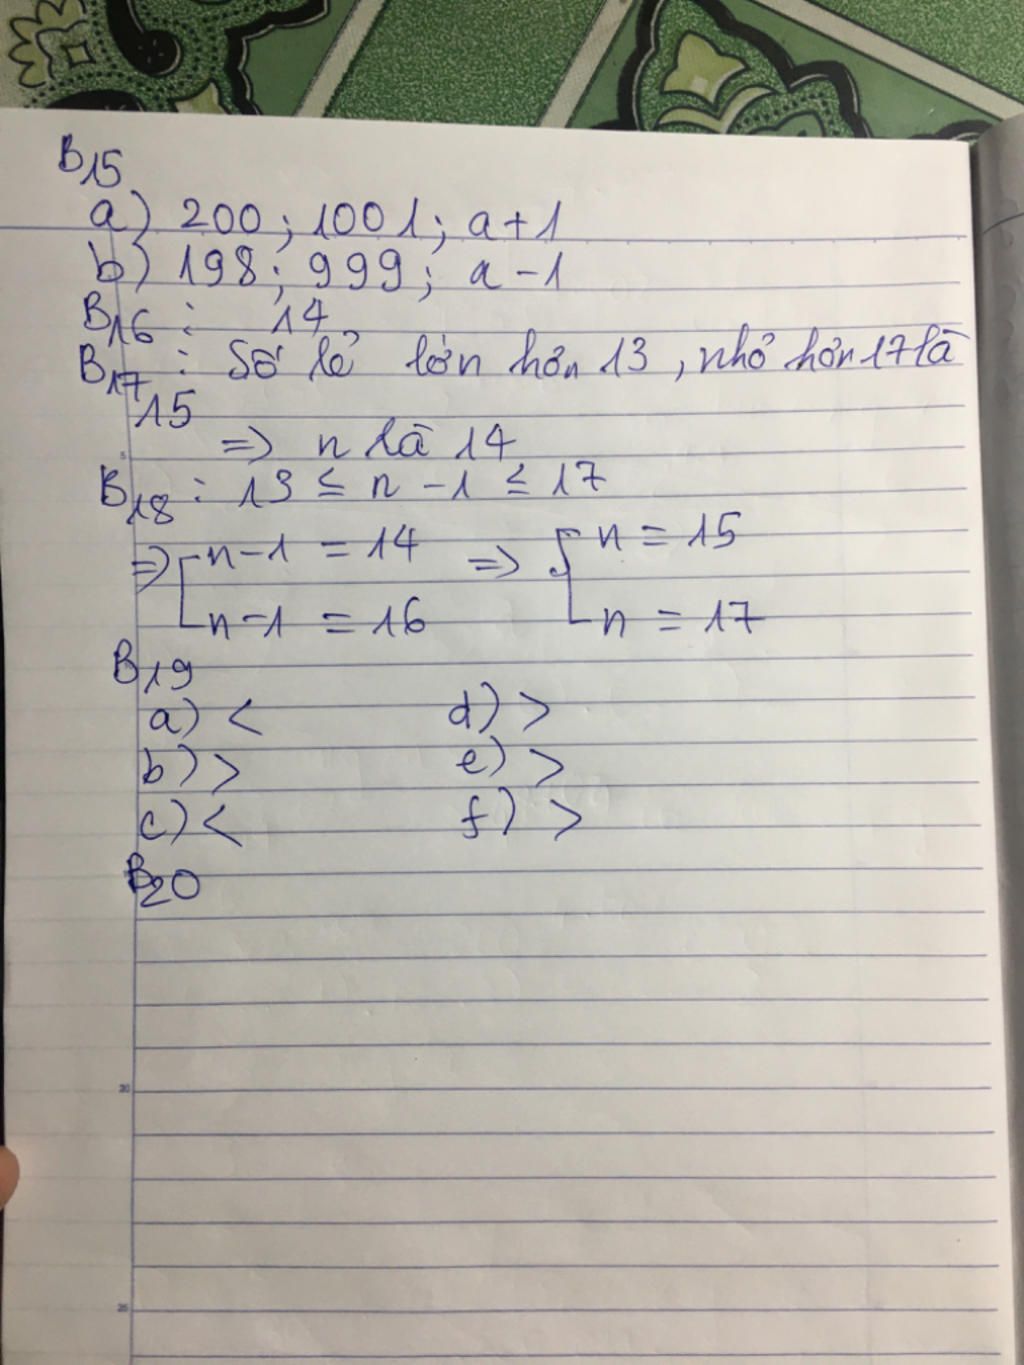 B15
a) 200 ; 1001 ; a+1
b) 198 ; 999 ; a-1
B16 : 14
B17 : Số lẻ lớn hơn 13 , nhỏ hơn 17 là
15
=> n là 14
B18 : 13 ≤ n - 1 ≤ 17
=> [ n-1 = 14 => [ n = 15
n-1 = 16 n = 17
B19
a) < d) >
b) > e) >
c) < f) >
B20
20
25